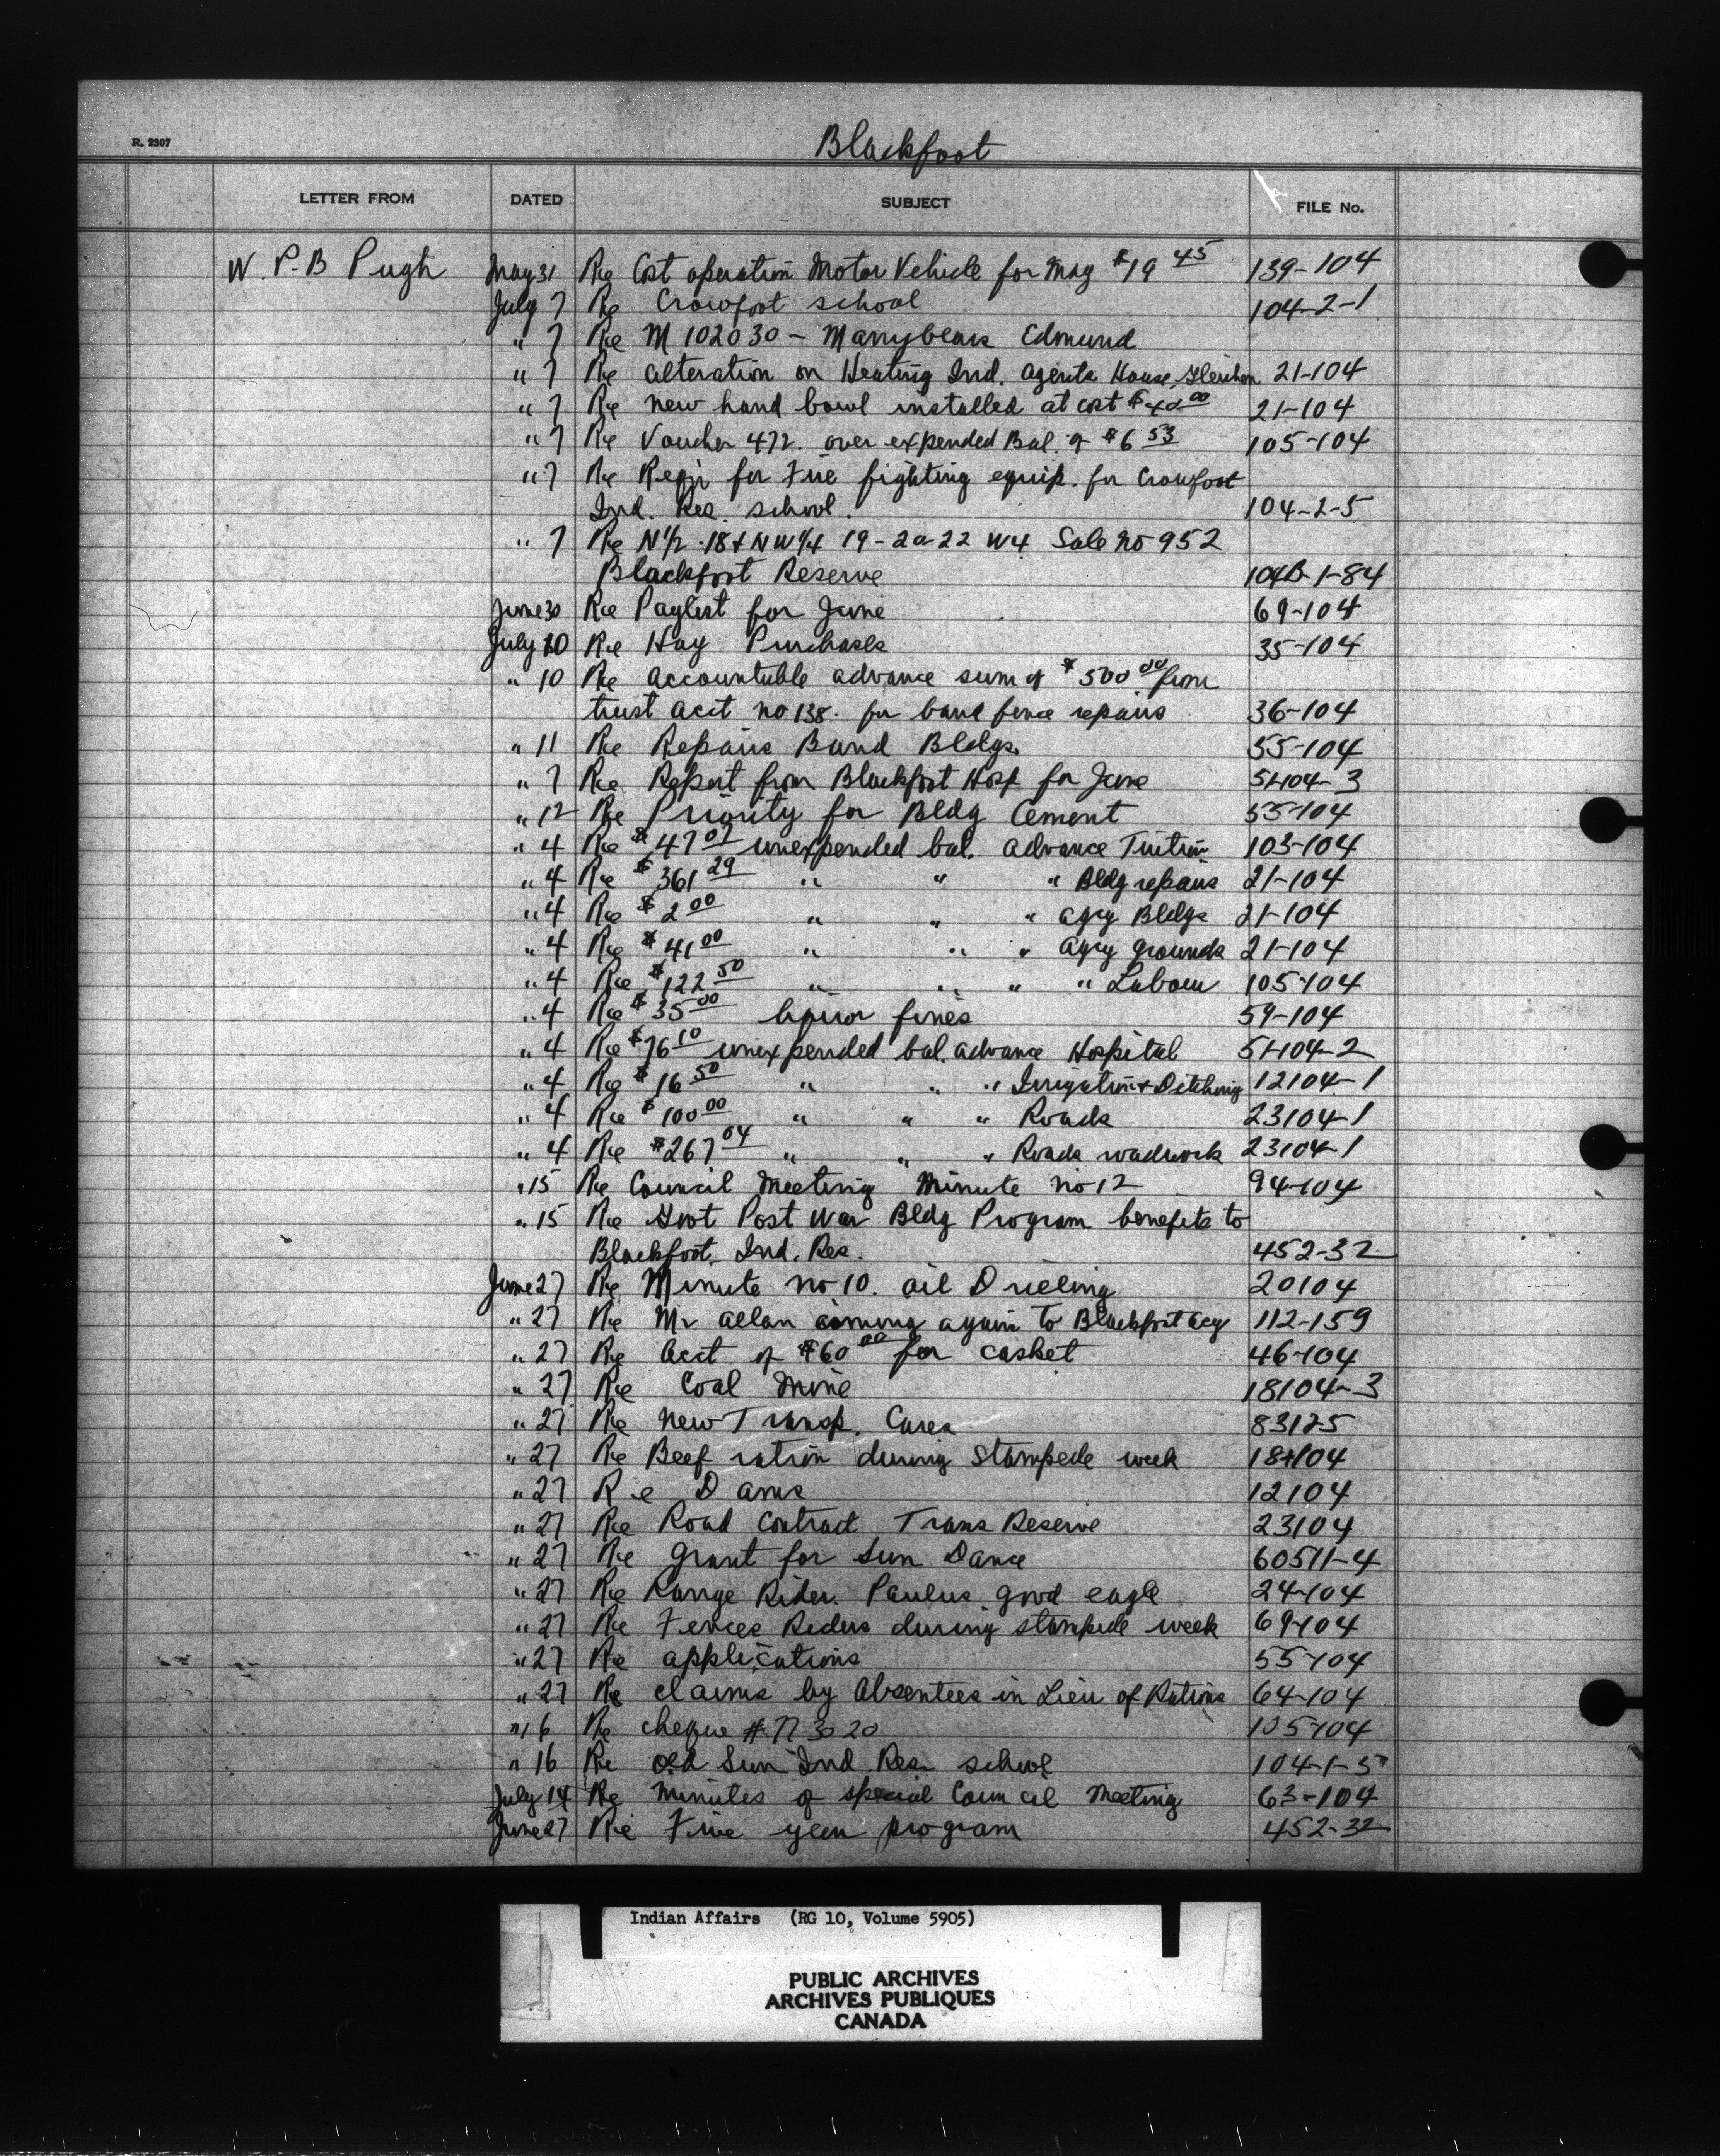 R. 2307
Blackfoot
LETTER FROM DATED SUBJECT FILE No.
W. P. B Pugh May 31 Re Cost operation Motor Vehicle for May $19 45 139-104
July 7 Re Crowfoot school 104-2-1
" 7 Re M 102030 - Manybears Edmund
" 7 Re alteration on Heating Ind. Agents House, Gleichen 21-104
" 7 Re new hand bowl installed at cost $40 00 21-104
" 7 Re Voucher 472. over expended Bal. of $6 53 105-104
" 7 Re Reqn for Fire fighting equip. for Crowfoot
Ind. Res. school. 104-2-5
" 7 Re N1/2 18 + NW1/4 19-20-22 W4 Sale no 952
Blackfoot Reserve 104B-1-84
June 30 Re Paylist for June 69-104
July 10 Re Hay Purchases 35-104
" 10 Re accountable advance sum of $500 00 from
trust acct no 138. for band fence repairs 36-104
" 11 Re Repairs Band Bldgs. 55-104
" 7 Re Report from Blackfoot Hosp for June 51104-3
" 12 Re Priority for Bldg Cement 55-104
" 4 Re $47 07 unexpended bal. advance Tuition 103-104
" 4 Re $361 29 " " " Bldg repairs 21-104
" 4 Re $2 00 " " " Agcy Bldgs 21-104
" 4 Re $41 00 " " " Agcy grounds 21-104
" 4 Re $122 50 " " " " Labour 105-104
" 4 Re $35 00 liquor fines 59-104
" 4 Re $76 10 unexpended bal. advance Hospital 51104-2
" 4 Re $16 50 " " " Irrigation + Ditching 12104-1
" 4 Re $100 00 " " " Roads 23104-1
" 4 Re $267 04 " " " Roads roadwork 23104-1
" 15 Re Council Meeting Minute no 12 94-104
" 15 Re Govt Post War Bldg Program benefits to
Blackfoot Ind. Res. 452-32
June 27 Re Minute no 10. oil Drilling 20104
" 27 Re Mr Allan coming again to Blackfoot Agy 112-159
" 27 Re Acct of $60 00 for casket 46-104
" 27 Re Coal Mine 18104-3
" 27 Re New Transp. Cares 83125
" 27 Re Beef ration during Stampede week 184104
" 27 Re Dams 12104
" 27 Re Road Contract Trans Reserve 23104
" 27 Re Grant for Sun Dance 60511-4
" 27 Re Range Rider. Paulus good eagle 24-104
" 27 Re Fences Riders during stampede week 69-104
" 27 Re applications 55-104
" 27 Re claims by Absentees in Lieu of Rations 64-104
" 16 Re cheque # 773020 105-104
" 16 Re Old Sun Ind. Res. school 104-1-5
July 14 Re Minutes of special Council Meeting 63-104
June 27 Re Five year program 452-32
Indian Affairs (RG 10, Volume 5905)
PUBLIC ARCHIVES
ARCHIVES PUBLIQUES
CANADA